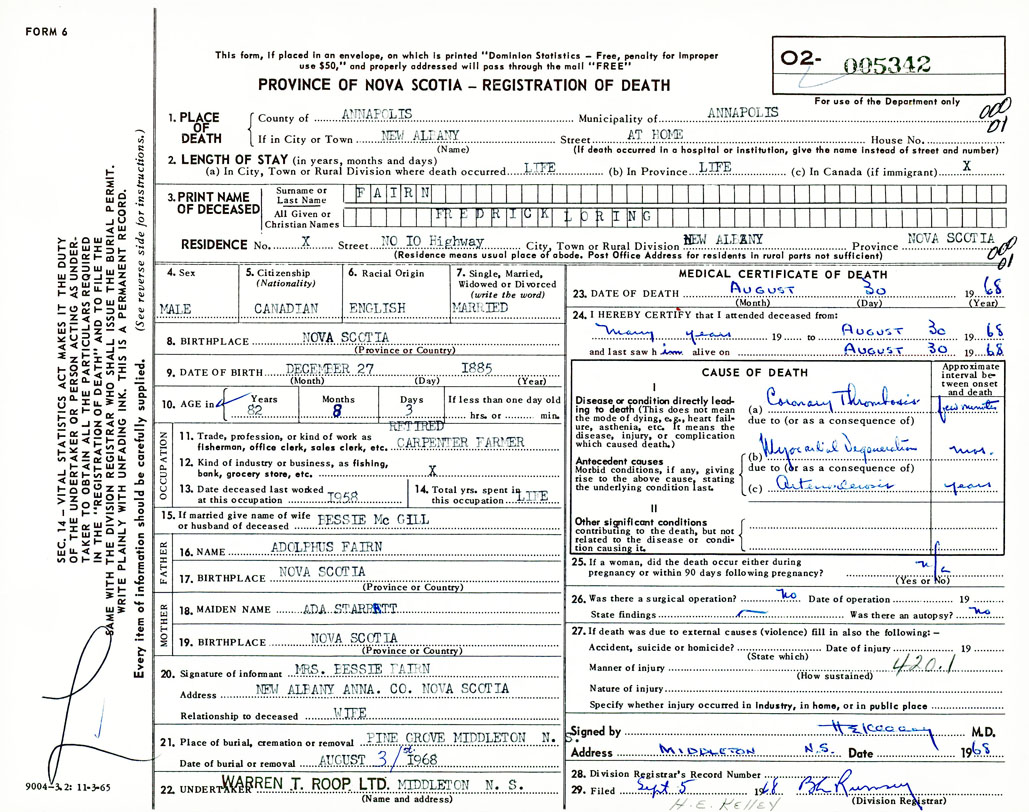 FORM 6
This form, if placed in an envelope, on which is printed "Dominion Statistics – Free, penalty for improper
use $50," and properly addressed will pass through the mail "FREE"
PROVINCE OF NOVA SCOTIA – REGISTRATION OF DEATH
02- 005342
For use of the Department only
000
01
1. PLACE OF DEATH
County of ANNAPOLIS Municipality of ANNAPOLIS
If in City or Town NEW ALBANY Street AT HOME House No.
(Name) (If death occurred in a hospital or institution, give the name instead of street and number)
2. LENGTH OF STAY (in years, months and days)
(a) In City, Town or Rural Division where death occurred LIFE (b) In Province LIFE (c) In Canada (if immigrant) X
3. PRINT NAME OF DECEASED
Surname or Last Name FAIRN
All Given or Christian Names FREDRICK LORING
RESIDENCE No. X Street NO IO Highway City, Town or Rural Division NEW ALBANY Province NOVA SCOTIA
(Residence means usual place of abode. Post Office Address for residents in rural parts not sufficient)
000
01
4. Sex
MALE
5. Citizenship (Nationality)
CANADIAN
6. Racial Origin
ENGLISH
7. Single, Married, Widowed or Divorced (write the word)
MARRIED
8. BIRTHPLACE NOVA SCOTIA
(Province or Country)
9. DATE OF BIRTH DECEMBER 27 I885
(Month) (Day) (Year)
10. AGE in Years 82 Months 8 Days 3 If less than one day old hrs. or min.
OCCUPATION
RETIRED
11. Trade, profession, or kind of work as fisherman, office clerk, sales clerk, etc. CARPENTER FARMER
12. Kind of industry or business, as fishing, bank, grocery store, etc. X
13. Date deceased last worked at this occupation I958
14. Total yrs. spent in this occupation LIFE
15. If married give name of wife or husband of deceased BESSIE Mc GILL
FATHER
16. NAME ADOLPHUS FAIRN
17. BIRTHPLACE NOVA SCOTIA
(Province or Country)
MOTHER
18. MAIDEN NAME ADA STARRATT
19. BIRTHPLACE NOVA SCOTIA
(Province or Country)
20. Signature of informant MRS. BESSIE FAIRN
Address NEW ALBANY ANNA. CO. NOVA SCOTIA
Relationship to deceased WIFE
21. Place of burial, cremation or removal PINE GROVE MIDDLETON N. S.
Date of burial or removal AUGUST 31st 1968
22. UNDERTAKER WARREN T. ROOP LTD. MIDDLETON N. S.
(Name and address)
MEDICAL CERTIFICATE OF DEATH
23. DATE OF DEATH AUGUST 30 1968
(Month) (Day) (Year)
24. I HEREBY CERTIFY that I attended deceased from:
many years 19 to AUGUST 30 1968
and last saw him alive on AUGUST 30 1968
CAUSE OF DEATH
Approximate interval between onset and death
I
Disease or condition directly leading to death (This does not mean the mode of dying, e.g., heart failure, asthenia, etc. It means the disease, injury, or complication which caused death.)
(a) Coronary Thrombosis few minutes
due to (or as a consequence of)
Antecedent causes
Morbid conditions, if any, giving rise to the above cause, stating the underlying condition last.
(b) Myocardial Degeneration mos.
due to (or as a consequence of)
(c) Arteriosclerosis years
II
Other significant conditions contributing to the death, but not related to the disease or condition causing it.
25. If a woman, did the death occur either during pregnancy or within 90 days following pregnancy? n/a
(Yes or No)
26. Was there a surgical operation? No Date of operation 19
State findings Was there an autopsy? No
27. If death was due to external causes (violence) fill in also the following: –
Accident, suicide or homicide? Date of injury 19
(State which)
Manner of injury 420.1
(How sustained)
Nature of injury
Specify whether injury occurred in Industry, in home, or in public place
Signed by M.D.
Address MIDDLETON N.S. Date 1968
28. Division Registrar's Record Number
29. Filed Sept 5 1968
(Division Registrar)
H. E. KELLEY
SEC. 14 – VITAL STATISTICS ACT MAKES IT THE DUTY
OF THE UNDERTAKER OR PERSON ACTING AS UNDER-
TAKER TO OBTAIN ALL THE PARTICULARS REQUIRED
IN THE "REGISTRATION OF DEATH" AND TO FILE THE
SAME WITH THE DIVISION REGISTRAR WHO SHALL ISSUE THE BURIAL PERMIT.
WRITE PLAINLY WITH UNFADING INK. THIS IS A PERMANENT RECORD.
Every item of information should be carefully supplied. (See reverse side for instructions.)
9004-3.2: 11-3-65